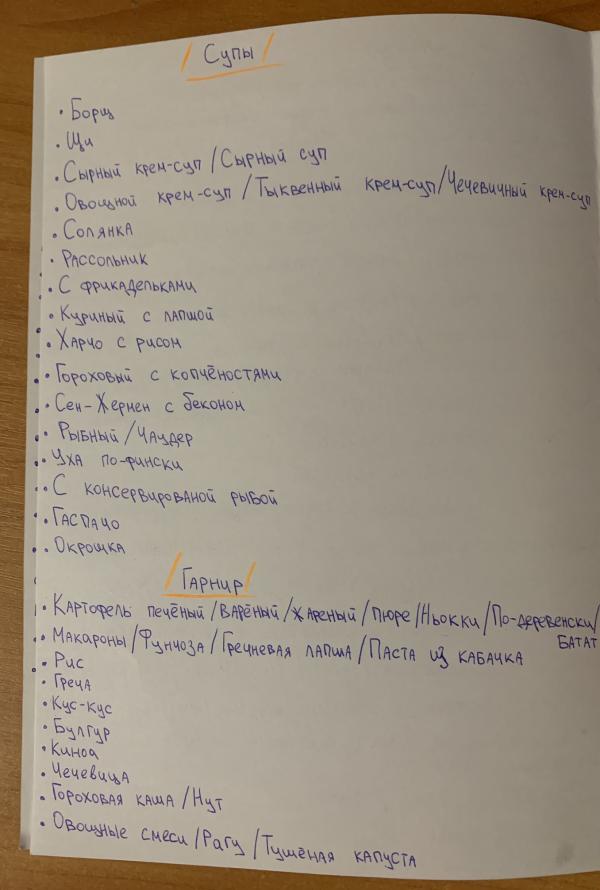 /Супы/
• Борщ
• Щи
• Сырный крем-суп/Сырный суп
• Овощной крем-суп/Тыквенный крем-суп/Чечевичный крем-суп
• Солянка
• Рассольник
• С фрикадельками
• Куриный с лапшой
• Харчо с рисом
• Гороховый с копчёностями
• Сен-Жермен с беконом
• Рыбный/Чаудер
• Уха по-фински
• С консервированой рыбой
• Гаспачо
• Окрошка
/Гарнир/
• Картофель печёный/варёный/жареный/пюре/Ньокки/По-деревенски/
батат
• Макароны/Фунчоза/Гречневая лапша/Паста из кабачка
• Рис
• Греча
• Кус-кус
• Булгур
• Киноа
• Чечевица
• Гороховая каша/Нут
• Овощные смеси/Рагу/Тушёная капуста